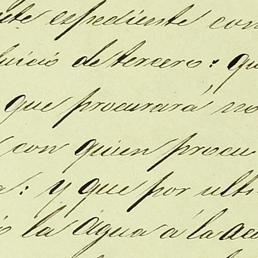 este espediente con
juicio de tercero: que
que procurará no
con quien procu
: y que por ulti
la Agua á la ace